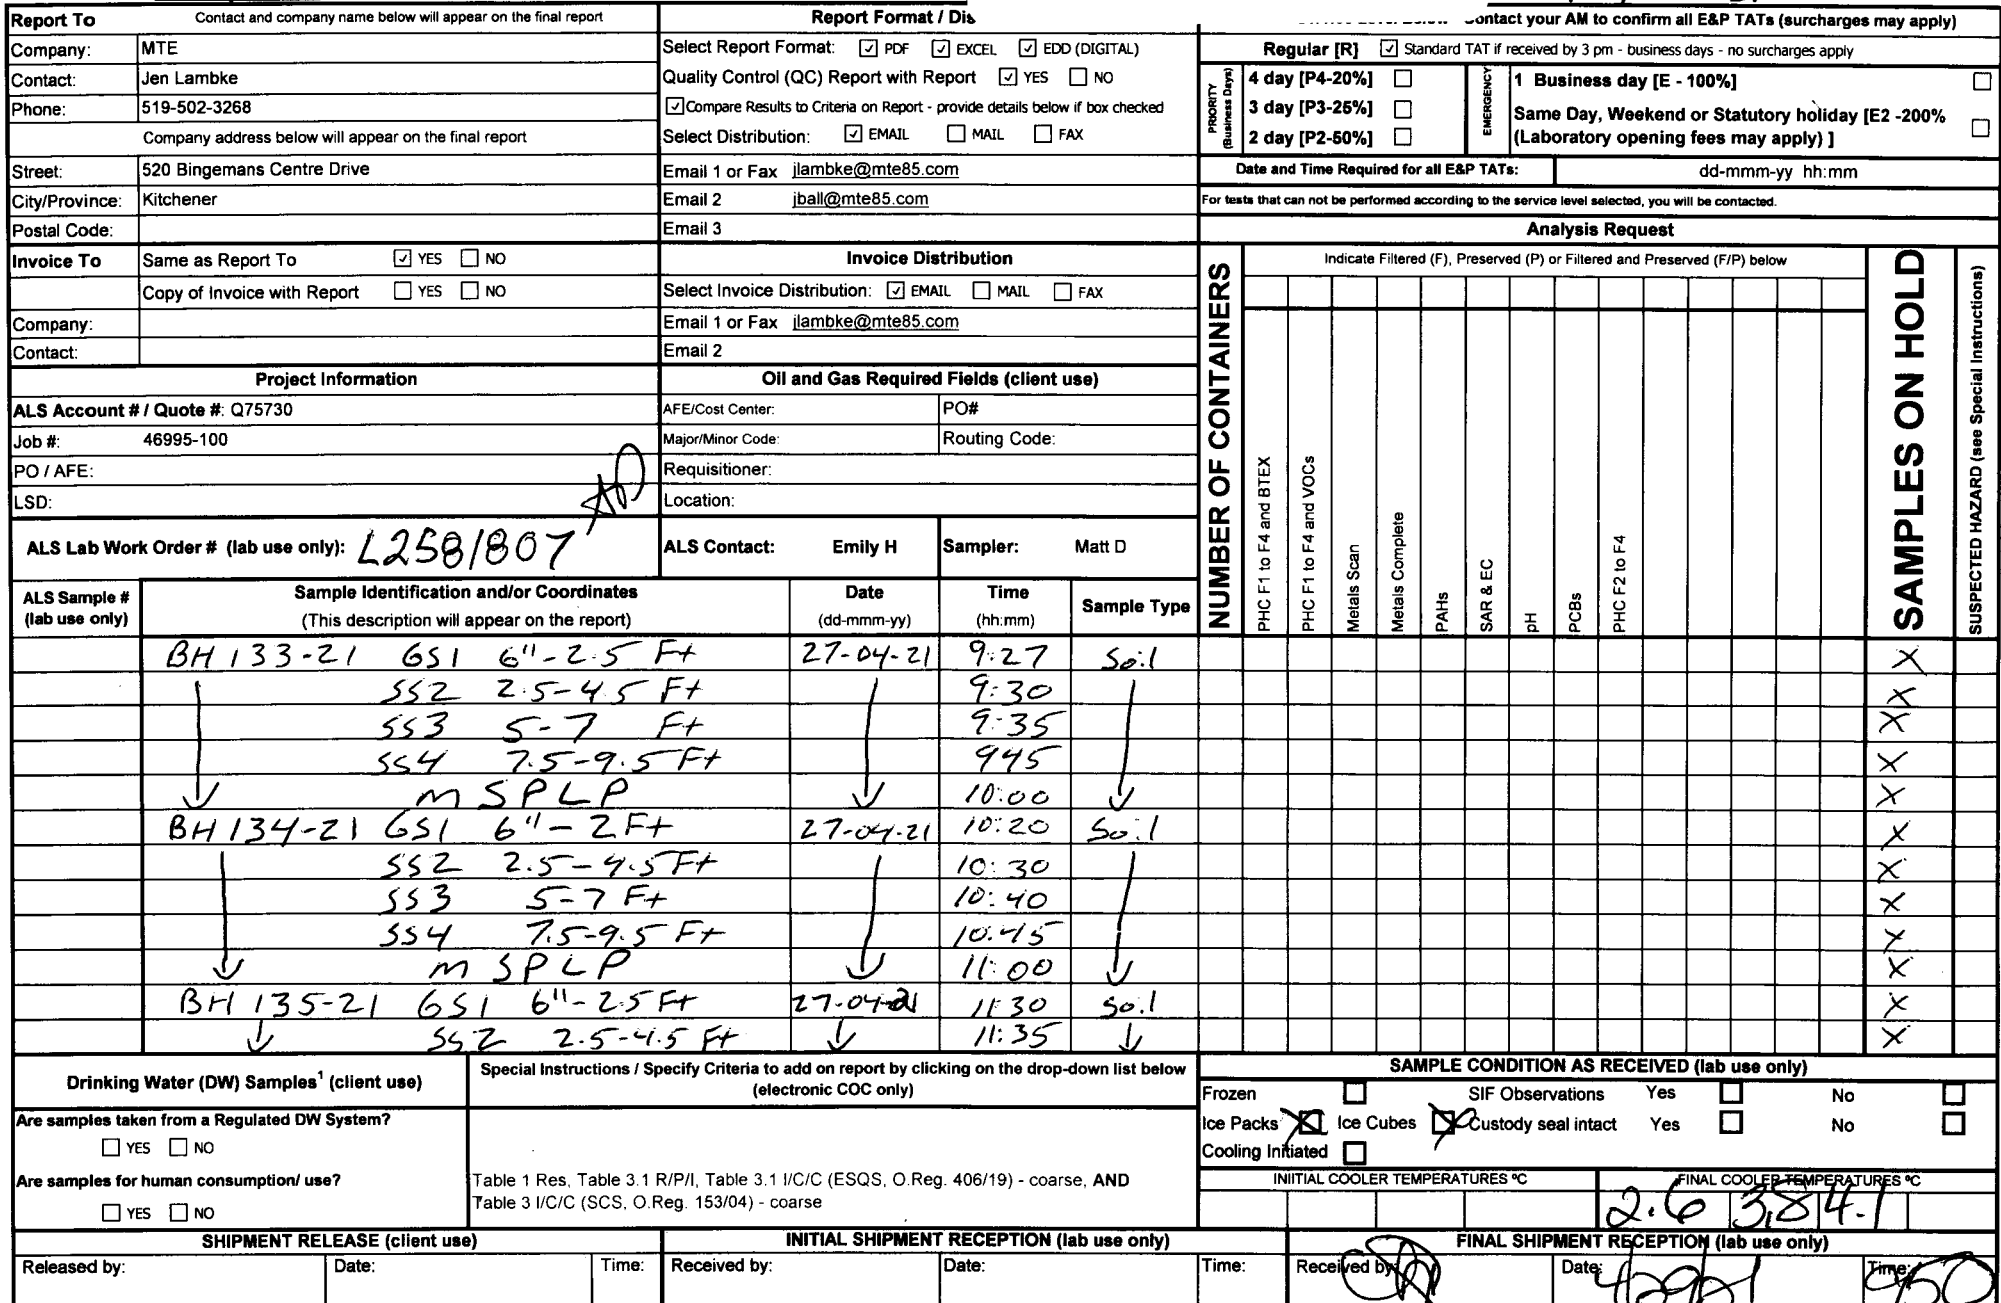 Report To Contact and company name below will appear on the final report
Company: MTE
Contact: Jen Lambke
Phone: 519-502-3268
Company address below will appear on the final report
Street: 520 Bingemans Centre Drive
City/Province: Kitchener
Postal Code:
Invoice To Same as Report To ☑ YES ☐ NO
Copy of Invoice with Report ☐ YES ☐ NO
Company:
Contact:
Project Information
ALS Account # / Quote #: Q75730
Job #: 46995-100
PO / AFE:
LSD:
ALS Lab Work Order # (lab use only): L2581807
Report Format / Dis
Select Report Format: ☑ PDF ☑ EXCEL ☑ EDD (DIGITAL)
Quality Control (QC) Report with Report ☑ YES ☐ NO
☑ Compare Results to Criteria on Report - provide details below if box checked
Select Distribution: ☑ EMAIL ☐ MAIL ☐ FAX
Email 1 or Fax jlambke@mte85.com
Email 2 jball@mte85.com
Email 3
Invoice Distribution
Select Invoice Distribution: ☑ EMAIL ☐ MAIL ☐ FAX
Email 1 or Fax jlambke@mte85.com
Email 2
Oil and Gas Required Fields (client use)
AFE/Cost Center: PO#
Major/Minor Code: Routing Code:
Requisitioner:
Location:
ALS Contact: Emily H Sampler: Matt D
contact your AM to confirm all E&P TATs (surcharges may apply)
Regular [R] ☑ Standard TAT if received by 3 pm - business days - no surcharges apply
PRIORITY (Business Days)
4 day [P4-20%] ☐
3 day [P3-25%] ☐
2 day [P2-50%] ☐
EMERGENCY
1 Business day [E - 100%] ☐
Same Day, Weekend or Statutory holiday [E2 -200%
(Laboratory opening fees may apply) ] ☐
Date and Time Required for all E&P TATs: dd-mmm-yy hh:mm
For tests that can not be performed according to the service level selected, you will be contacted.
Analysis Request
Indicate Filtered (F), Preserved (P) or Filtered and Preserved (F/P) below
NUMBER OF CONTAINERS
PHC F1 to F4 and BTEX
PHC F1 to F4 and VOCs
Metals Scan
Metals Complete
PAHs
SAR & EC
pH
PCBs
PHC F2 to F4
SAMPLES ON HOLD
SUSPECTED HAZARD (see Special Instructions)
ALS Sample # (lab use only) Sample Identification and/or Coordinates (This description will appear on the report) Date (dd-mmm-yy) Time (hh:mm) Sample Type
BH 133-21 GS1 6"-2.5 Ft 27-04-21 9:27 Soil X
SS2 2.5-4.5 Ft 9:30 X
SS3 5-7 Ft 9:35 X
SS4 7.5-9.5 Ft 945 X
m SPLP 10:00 X
BH 134-21 GS1 6"-2 Ft 27-04-21 10:20 Soil X
SS2 2.5-4.5 Ft 10:30 X
SS3 5-7 Ft 10:40 X
SS4 7.5-9.5 Ft 10:45 X
m SPLP 11:00 X
BH 135-21 GS1 6"-2.5 Ft 27-04-21 11:30 Soil X
SS2 2.5-4.5 Ft 11:35 X
Drinking Water (DW) Samples¹ (client use)
Are samples taken from a Regulated DW System?
☐ YES ☐ NO
Are samples for human consumption/ use?
☐ YES ☐ NO
Special Instructions / Specify Criteria to add on report by clicking on the drop-down list below
(electronic COC only)
Table 1 Res, Table 3.1 R/P/I, Table 3.1 I/C/C (ESQS, O.Reg. 406/19) - coarse, AND
Table 3 I/C/C (SCS, O.Reg. 153/04) - coarse
SAMPLE CONDITION AS RECEIVED (lab use only)
Frozen ☐ SIF Observations Yes ☐ No ☐
Ice Packs ☒ Ice Cubes ☒ Custody seal intact Yes ☐ No ☐
Cooling Initiated ☐
INIITIAL COOLER TEMPERATURES ºC FINAL COOLER TEMPERATURES ºC
2.6 3.8 4.1
SHIPMENT RELEASE (client use) INITIAL SHIPMENT RECEPTION (lab use only) FINAL SHIPMENT RECEPTION (lab use only)
Released by: Date: Time: Received by: Date: Time: Received by: Date: Time: